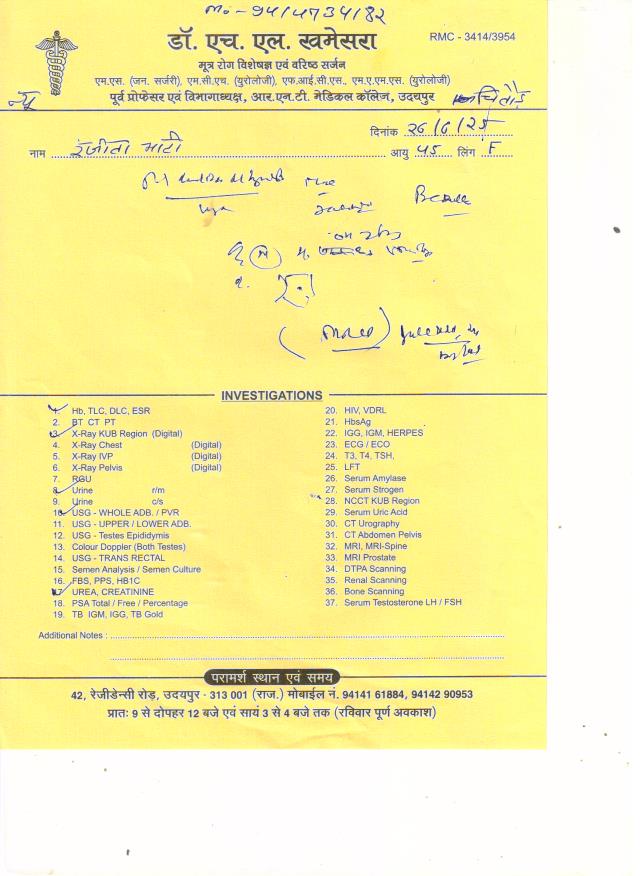 मो - 9414734182
डॉ. एच. एल. खमेसरा
RMC - 3414/3954
मूत्र रोग विशेषज्ञ एवं वरिष्ठ सर्जन
एम.एस. (जन. सर्जरी), एम.सी.एच. (युरोलोजी), एफ.आई.सी.एस., एम.ए.एम.एस. (युरोलोजी)
पूर्व प्रोफेसर एवं विभागाध्यक्ष, आर.एन.टी. मेडिकल कॉलेज, उदयपुर
न्यू
दिनांक 26/6/25
नाम आयु 45 लिंग F
INVESTIGATIONS
1. Hb, TLC, DLC, ESR
2. BT CT PT
3. X-Ray KUB Region (Digital)
4. X-Ray Chest (Digital)
5. X-Ray IVP (Digital)
6. X-Ray Pelvis (Digital)
7. RGU
8. Urine r/m
9. Urine c/s
10. USG - WHOLE ADB. / PVR
11. USG - UPPER / LOWER ADB.
12. USG - Testes Epididymis
13. Colour Doppler (Both Testes)
14. USG - TRANS RECTAL
15. Semen Analysis / Semen Culture
16. FBS, PPS, HB1C
17. UREA, CREATININE
18. PSA Total / Free / Percentage
19. TB IGM, IGG, TB Gold
20. HIV, VDRL
21. HbsAg
22. IGG, IGM, HERPES
23. ECG / ECO
24. T3, T4, TSH,
25. LFT
26. Serum Amylase
27. Serum Strogen
28. NCCT KUB Region
29. Serum Uric Acid
30. CT Urography
31. CT Abdomen Pelvis
32. MRI, MRI-Spine
33. MRI Prostate
34. DTPA Scanning
35. Renal Scanning
36. Bone Scanning
37. Serum Testosterone LH / FSH
Additional Notes :
परामर्श स्थान एवं समय
42, रेजीडेन्सी रोड़, उदयपुर - 313 001 (राज.) मोबाईल नं. 94141 61884, 94142 90953
प्रातः 9 से दोपहर 12 बजे एवं सायं 3 से 4 बजे तक (रविवार पूर्ण अवकाश)